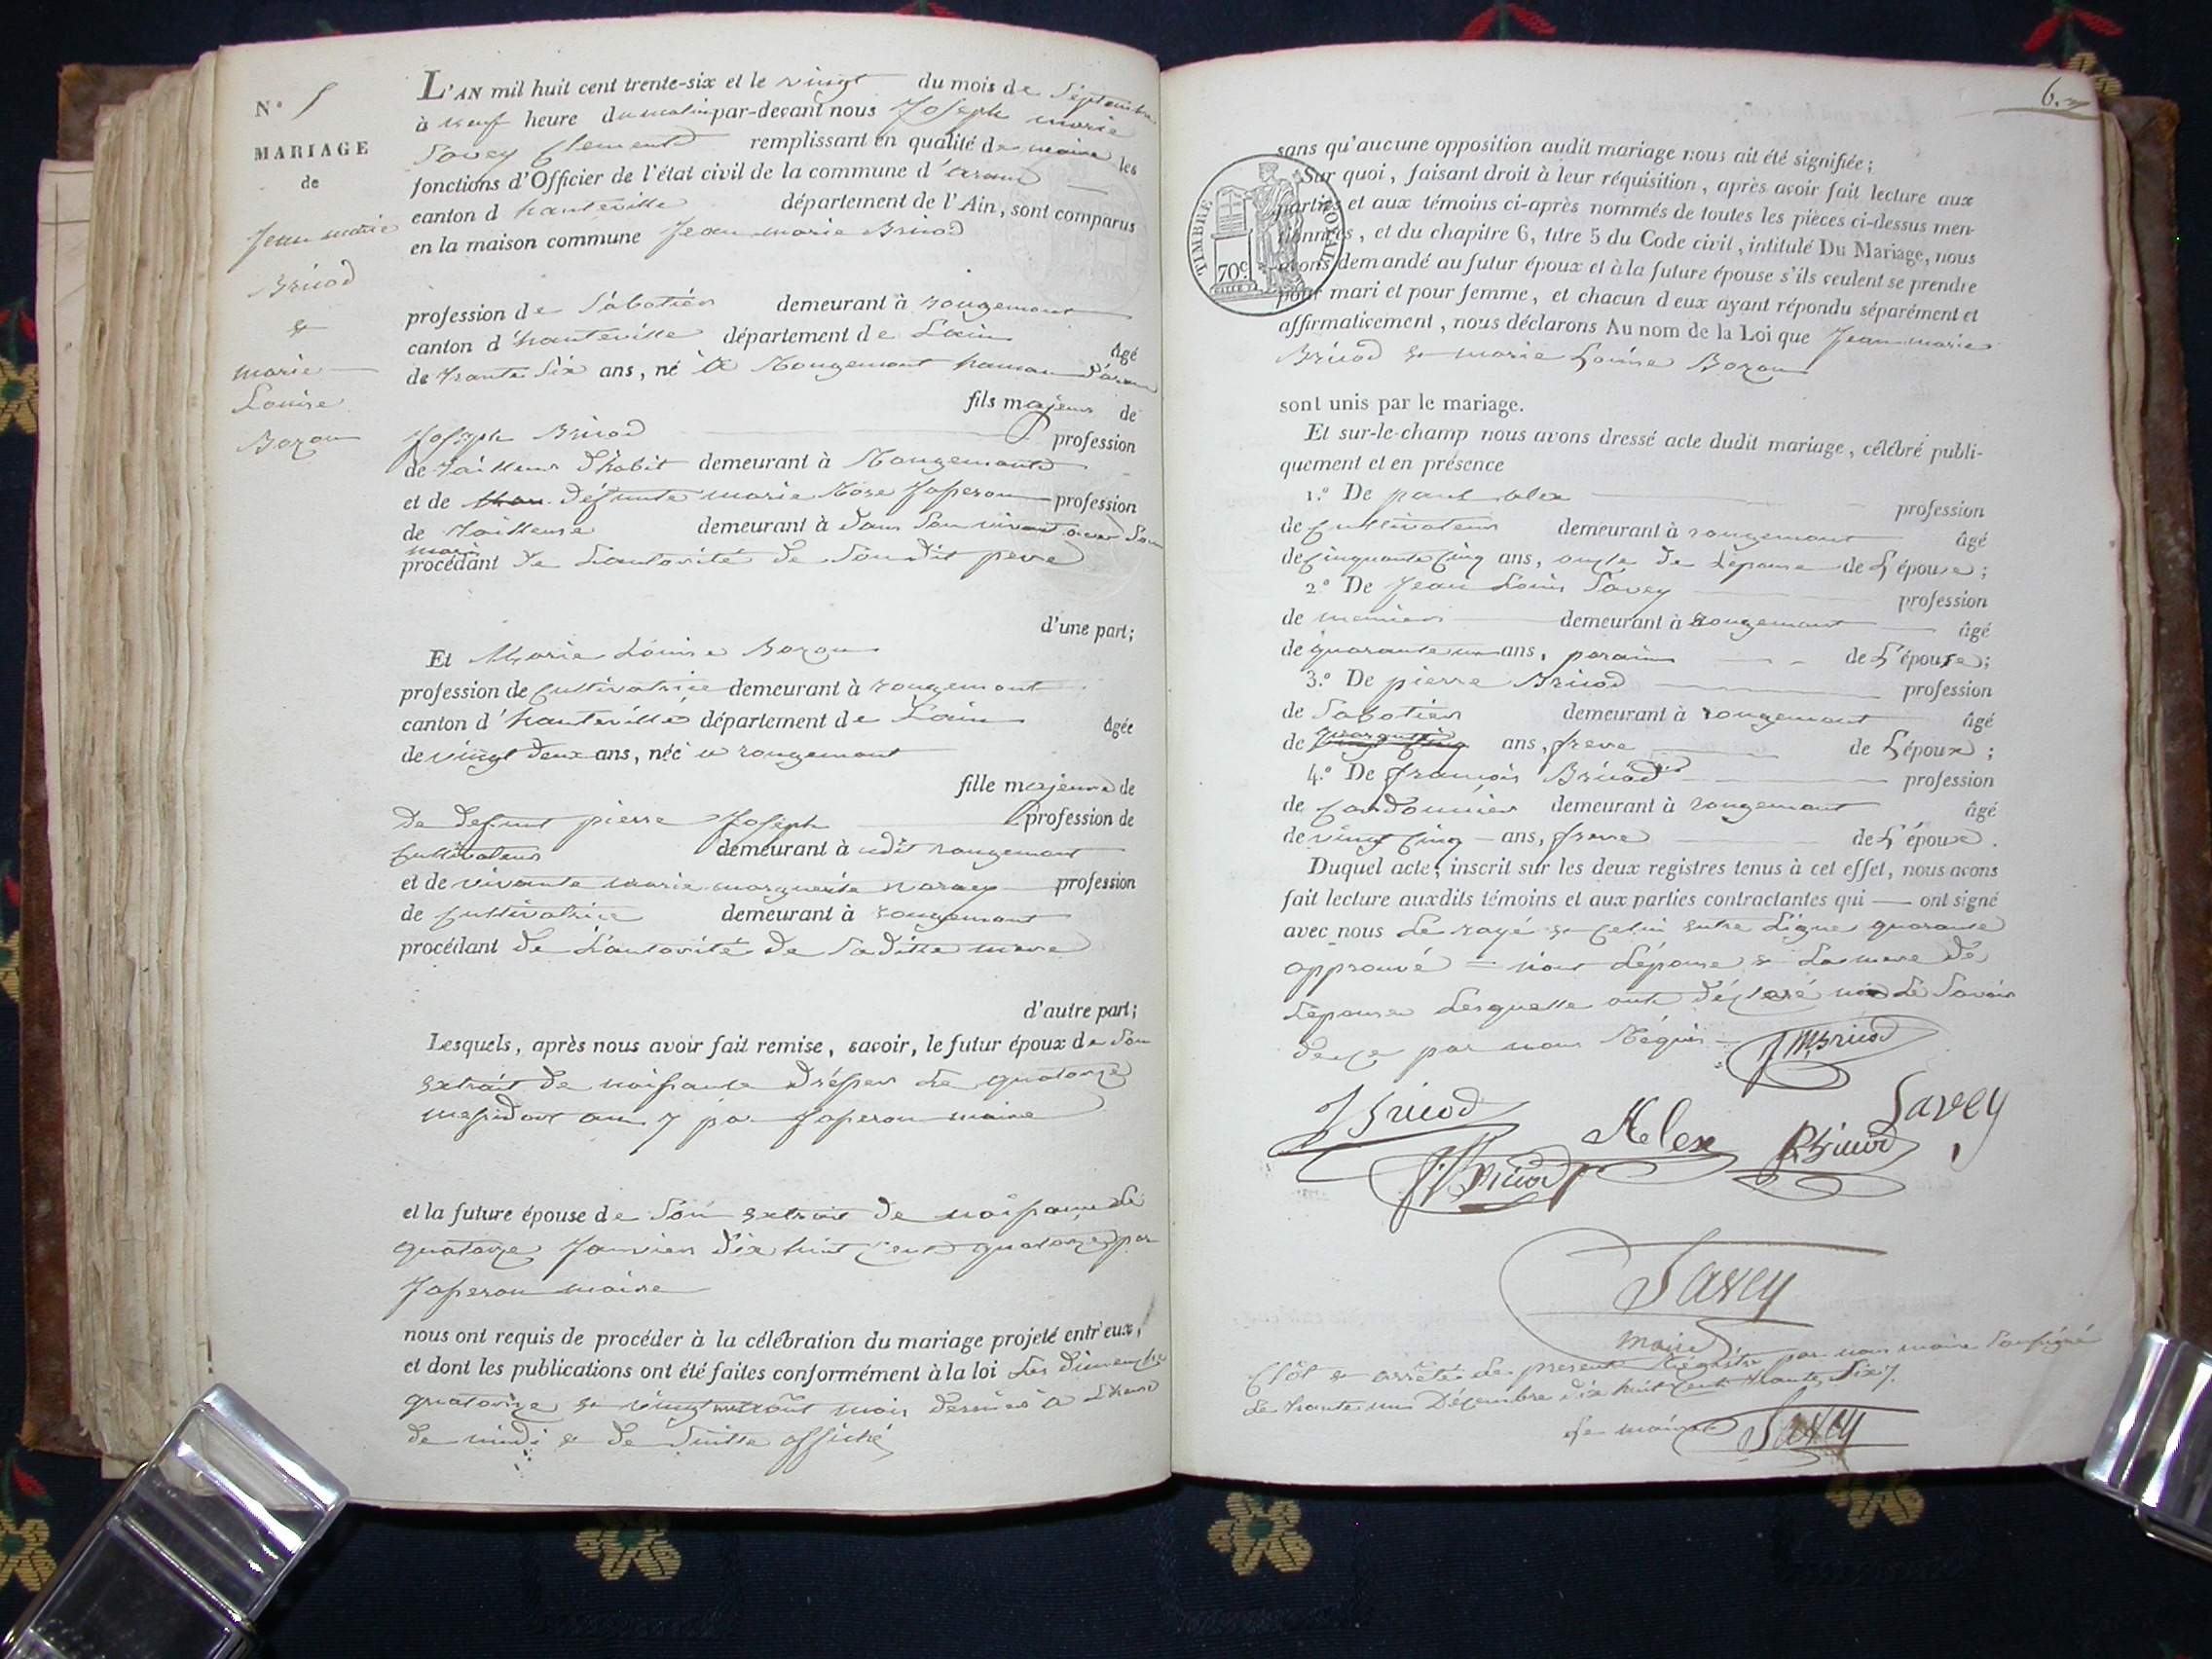 N° 5
MARIAGE
de
Jean marie
Bricod
&
marie
Louise
Bozon
L'AN mil huit cent trente-six et le vingt du mois de Septembre
à neuf heure du matin par-devant nous Joseph marie
Savey Clement remplissant en qualité de maire les
fonctions d'Officier de l'état civil de la commune d'aranc
canton d hauteville département de l'Ain, sont comparus
en la maison commune Jean marie Bricod
profession de Sabotier demeurant à rougemont
canton d'hauteville département de L'ain âgé
de trante Six ans, né à Rougemont hamau d'aranc
fils majeur de
Joseph Bricod profession
de Tailleur d'habit demeurant à Rougemont
et de défunte marie Rose Japeron profession
de Tailleuse demeurant à dans Son vivant avec Son
mari
procédant de L'autorité de Sondit pere
d'une part;
Et Marie Louise Bozon
profession de Cultivatrice demeurant à rougemont
canton d'hauteville département de L'ain âgée
de vingt deux ans, née à rougemont
fille majeure de
De defunt pierre Joseph profession de
Cultivateur demeurant à udit rougemont
et de vivante marie marguerite profession
de Cultivatrice demeurant à rougemont
procédant de L'autorité de Saditte mere
d'autre part;
Lesquels, après nous avoir fait remise, savoir, le futur époux de Son
extrait de naissance dresser Le quatorze
messidor an 7 par Japeron maire
et la future épouse de Son extrait de naissance du
quatorze Janvier dix huit Cent quatorze par
Japeron maire
nous ont requis de procéder à la célébration du mariage projeté entr'eux,
et dont les publications ont été faites conformément à la loi Les dimenche
quatorze & vingt un août mois dernier à L'heure
de midi & de Suitte affiché
6.
sans qu'aucune opposition audit mariage nous ait été signifiée;
Sur quoi, faisant droit à leur réquisition, après avoir fait lecture aux
parties et aux témoins ci-après nommés de toutes les pièces ci-dessus men-
tionnées, et du chapitre 6, titre 5 du Code civil, intitulé Du Mariage, nous
avons demandé au futur époux et à la future épouse s'ils veulent se prendre
pour mari et pour femme, et chacun d eux ayant répondu séparément et
affirmativement, nous déclarons Au nom de la Loi que Jean marie
Bricod & marie Louise Bozon
TIMBRE ROYAL
70c
sont unis par le mariage.
Et sur-le-champ nous avons dressé acte dudit mariage, célébré publi-
quement et en présence
1.° De paul alex profession
de Cultivateur demeurant à rougemont âgé
de Cinquante Cinq ans, oncle de L'épouse de L'épouse;
2.° De Jean Louis Savey profession
de demeurant à Rougemont âgé
de quarante un ans, parain de L'épouse;
3.° De pierre Bricod profession
de Sabotier demeurant à rougemont âgé
de quarante ans, frere de L'époux;
4.° De françois Bricod profession
de Cordonnier demeurant à rougemont âgé
de vingt Cinq ans, frere de L'époux.
Duquel acte, inscrit sur les deux registres tenus à cet effet, nous avons
fait lecture auxdits témoins et aux parties contractantes qui — ont signé
avec nous Le rayé & Celui entre Ligne quarante
approuvé = non L'épouse & La mere de
L'épouse Lesquelle ont déclaré ne Le Savoir
de ce par nous Réquis
JM Bricod
J Bricod
Alex
Savey
P Bricod
Bricod
Savey
maire
Clôt & arrêté Le présent Régistre par nous maire Soussigné
Le trante un Décembre dix huit Cent trante Six.
Le maire Savey